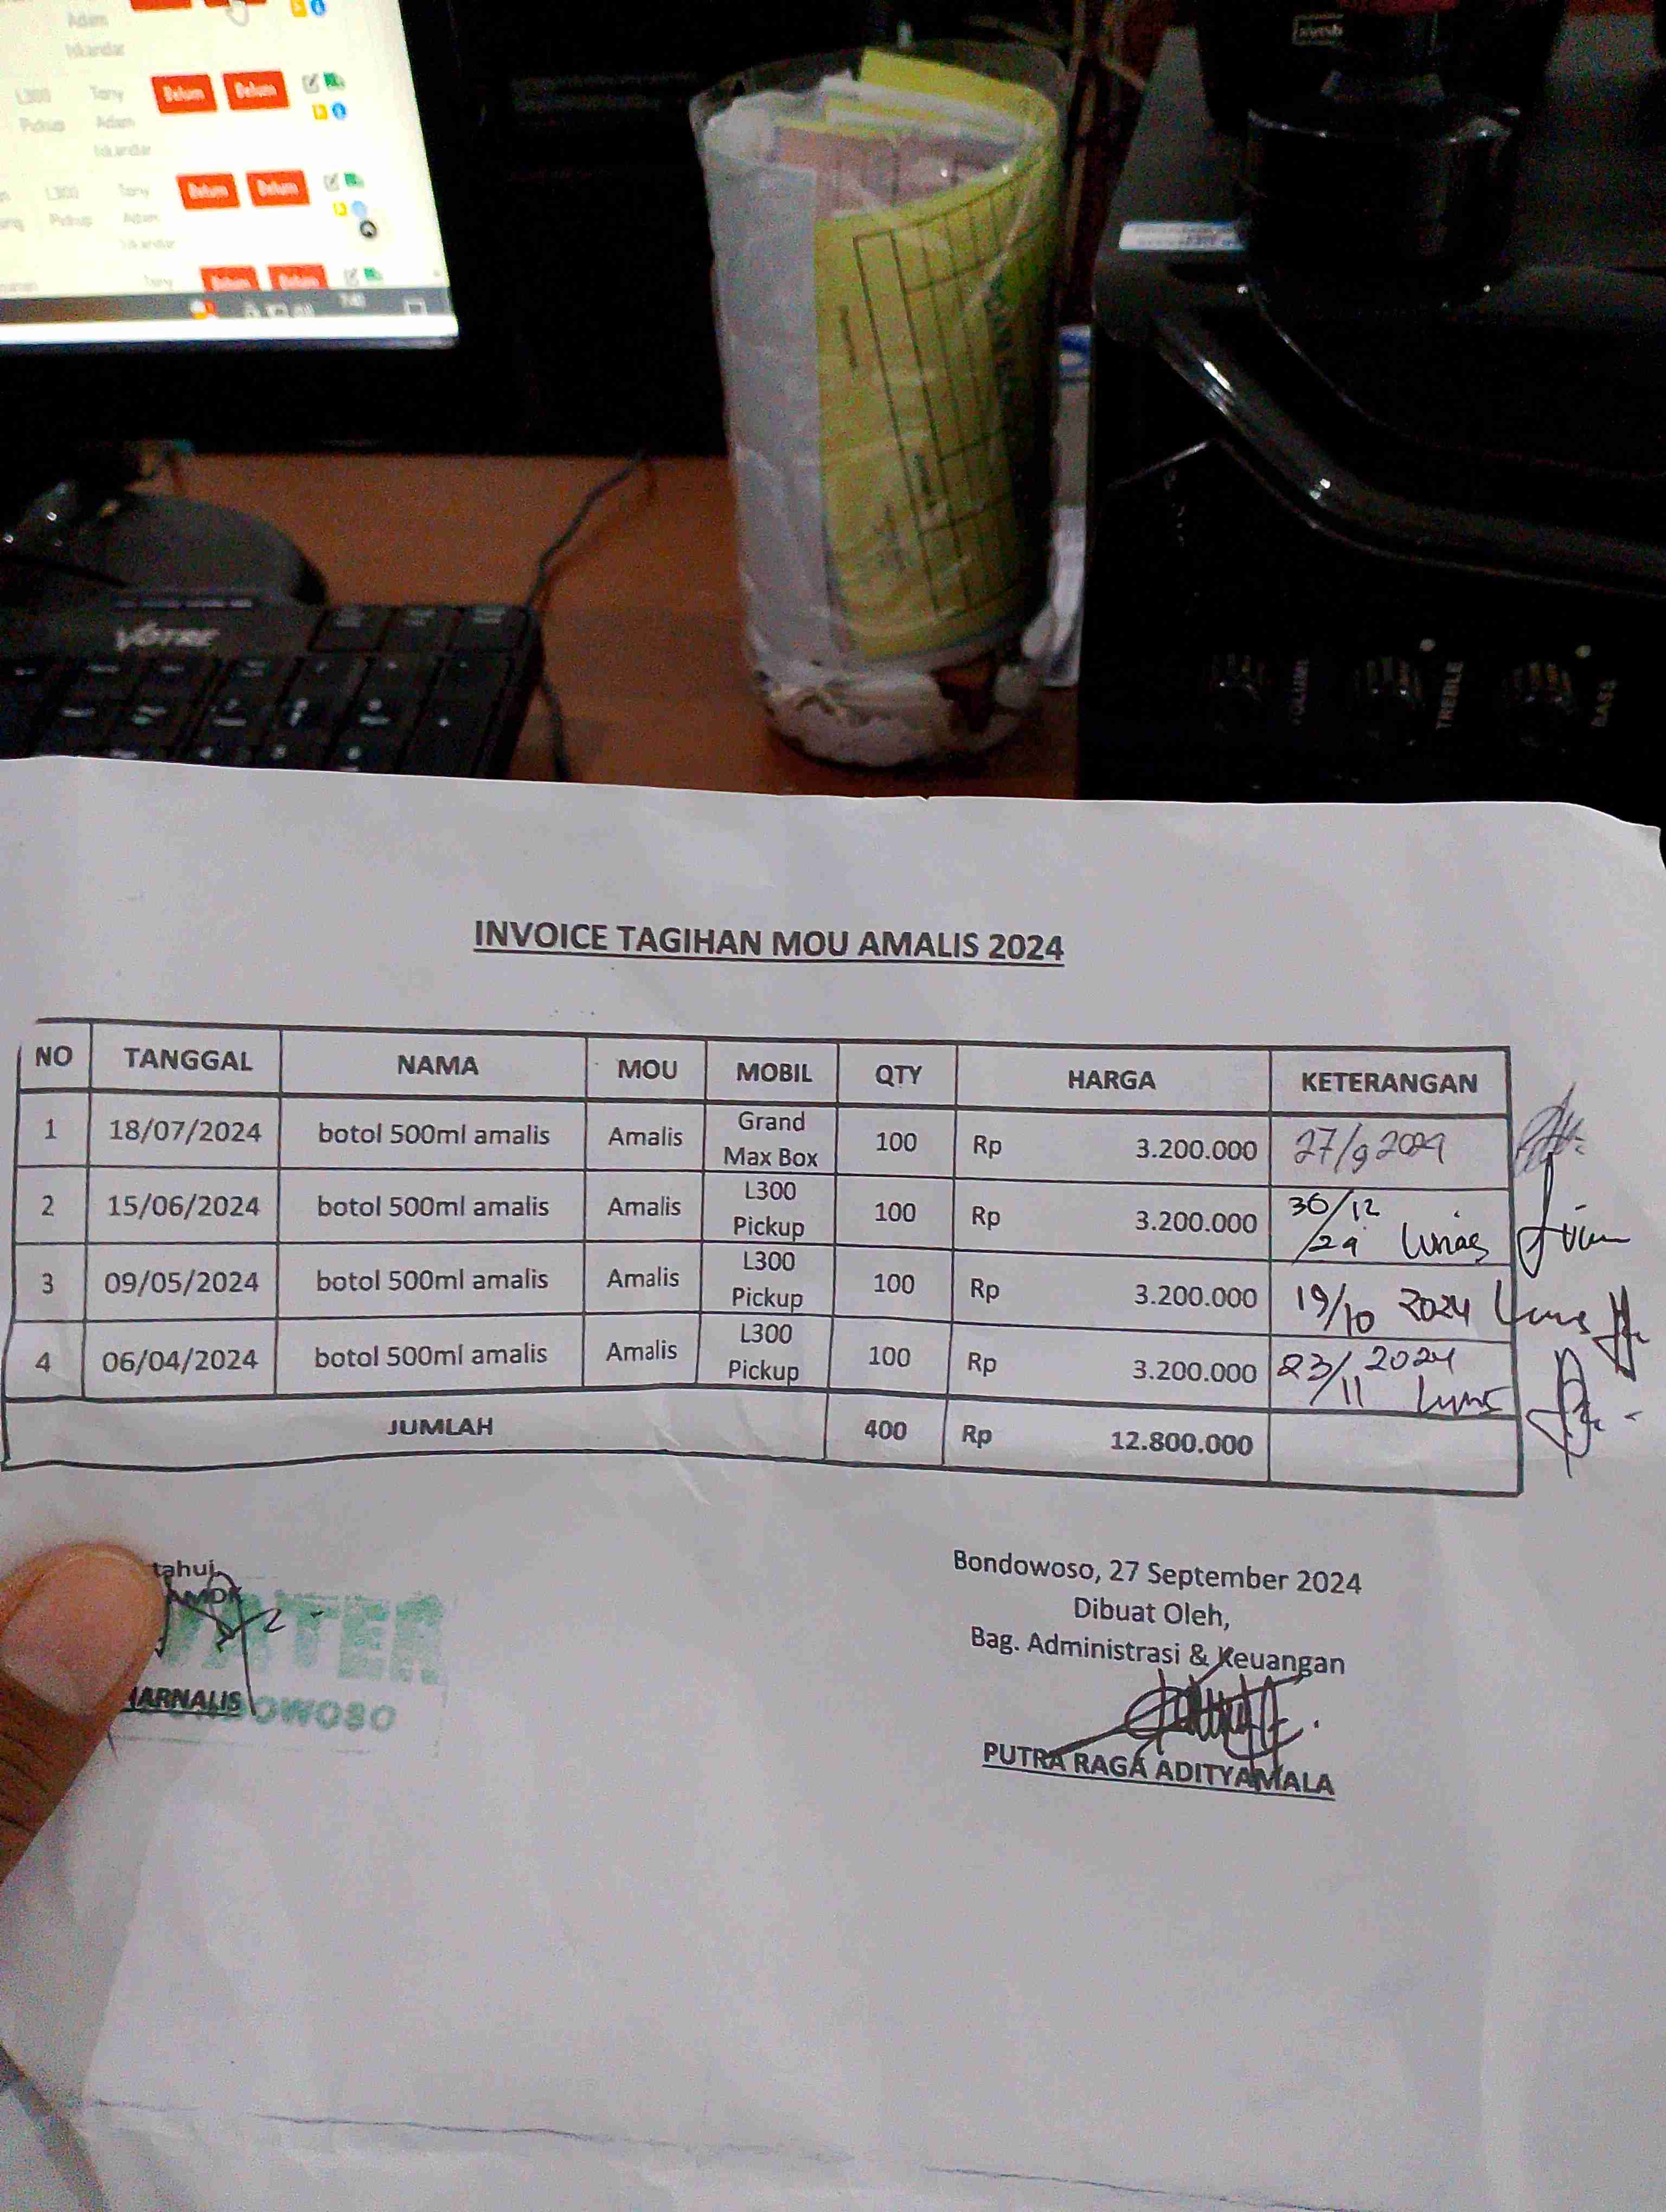 Adam
Iskandar
L300 Tony Belum Belum
Pickup Adam
Iskandar
L300 Tony Belum Belum
Pickup Adam
Iskandar
Tony Belum Belum
VOTRE
TREBLE
BASS
INVOICE TAGIHAN MOU AMALIS 2024
NO TANGGAL NAMA MOU MOBIL QTY HARGA KETERANGAN
1 18/07/2024 botol 500ml amalis Amalis Grand Max Box 100 Rp 3.200.000 27/9 2024
2 15/06/2024 botol 500ml amalis Amalis L300 Pickup 100 Rp 3.200.000 30/12/24 Lunas
3 09/05/2024 botol 500ml amalis Amalis L300 Pickup 100 Rp 3.200.000 19/10 2024 Lunas
4 06/04/2024 botol 500ml amalis Amalis L300 Pickup 100 Rp 3.200.000 23/11 2024 Lunas
JUMLAH 400 Rp 12.800.000
tahui,
AMDK
WATER
HARNALIS
BONDOWOSO
Bondowoso, 27 September 2024
Dibuat Oleh,
Bag. Administrasi & Keuangan
PUTRA RAGA ADITYAMALA